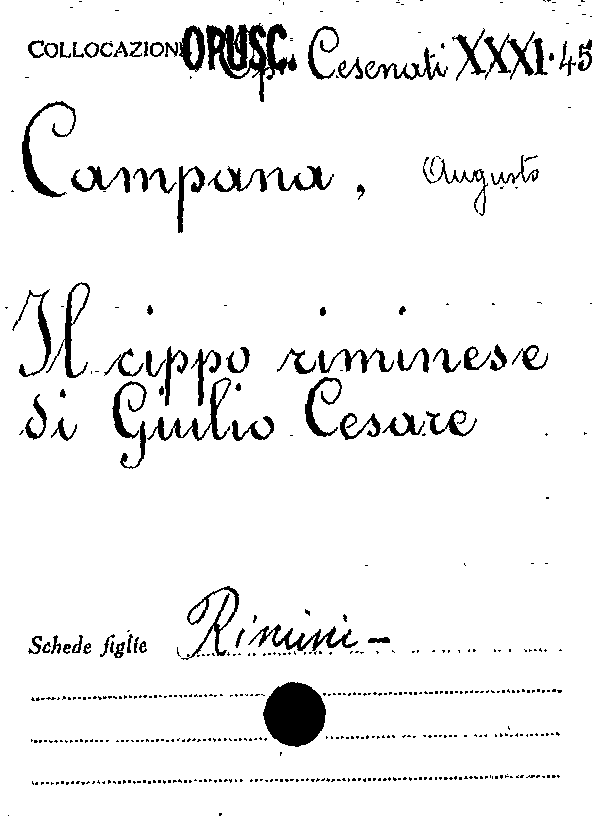 COLLOCAZIONE OPUSC. Cesenati XXXI.45
Campana, Augusto
Il cippo riminese
di Giulio Cesare
Schede figlie Rimini -